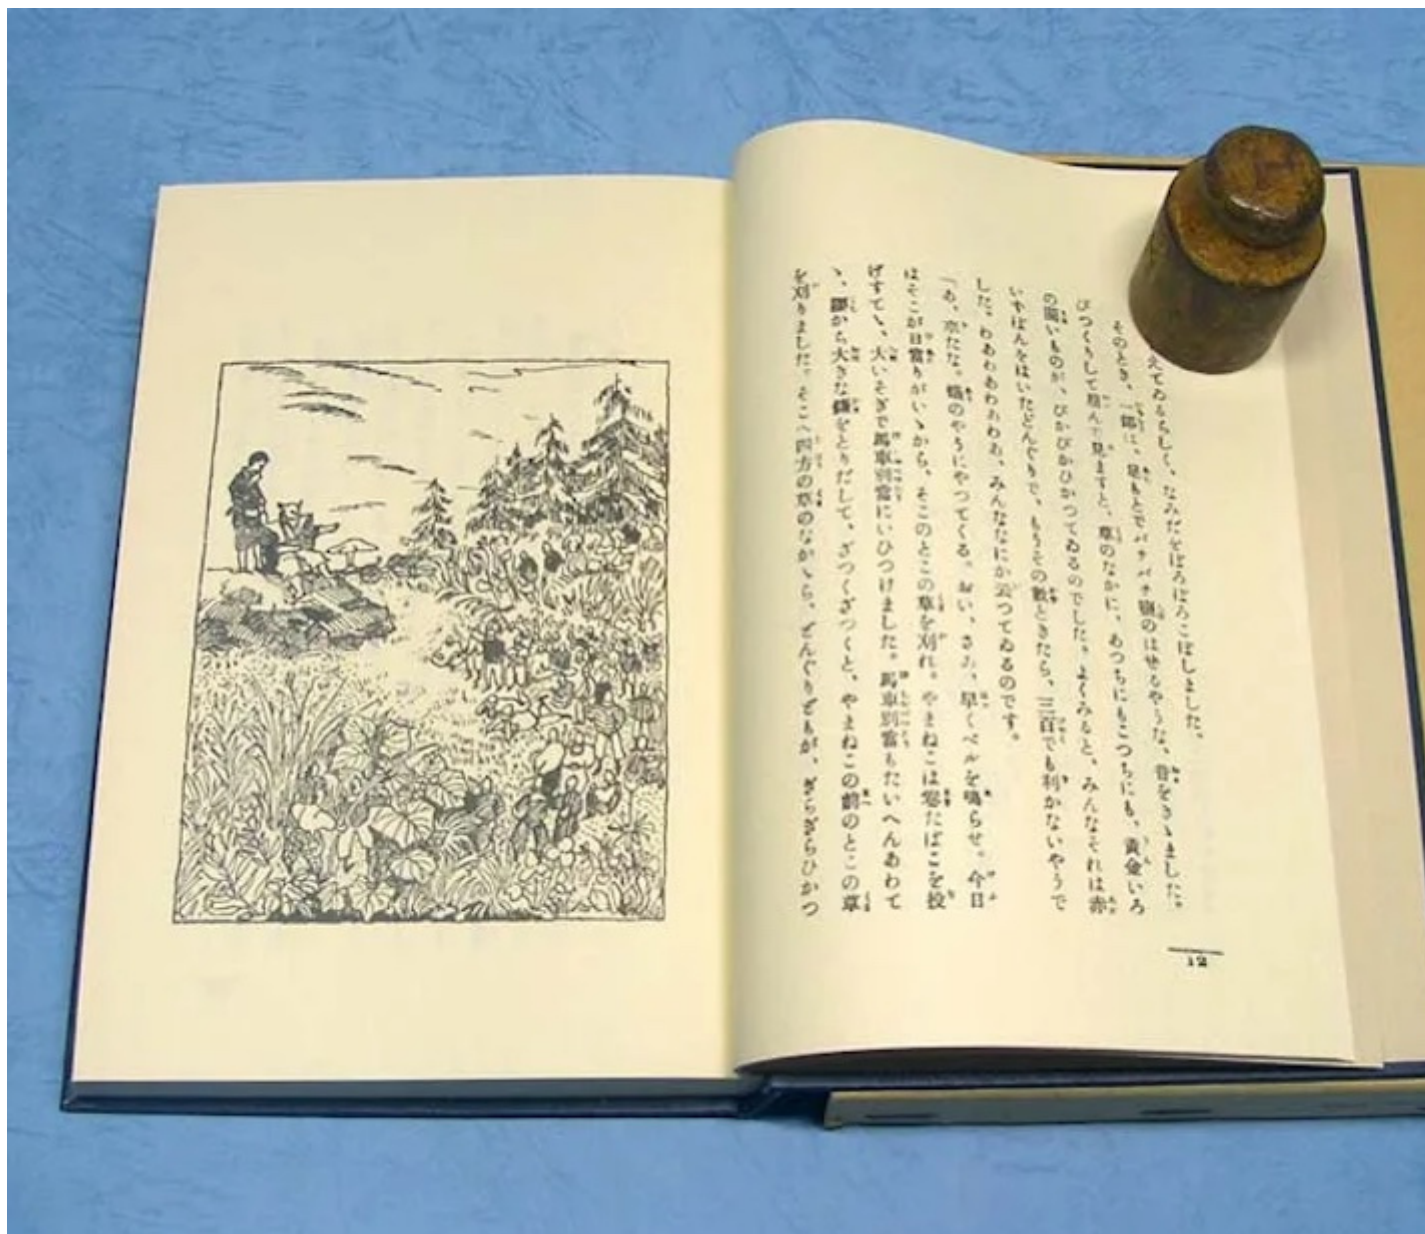 えてゐるらしく、なみだをぼろぼろこぼしました。
そのとき、一郎は、足もとでパチパチ鹽のはぜるやうな、音をきゝました。
びつくりして屈んで見ますと、草のなかに、あつちにもこつちにも、黄金いろ
の圓いものが、ぴかぴかひかつてゐるのでした。よくみると、みんなそれは赤
いずぼんをはいたどんぐりで、もうその數ときたら、三百でも利かないやうで
した。わあわあわあわあ、みんななにか云つてゐるのです。
「あ、來たな。蟻のやうにやつてくる。おい、さあ、早くベルを鳴らせ。今日
はそこが日當りがいゝから、そこのとこの草を刈れ。やまねこは卷たばこを投
げすてゝ、大いそぎで馬車別當にいひつけました。馬車別當もたいへんあわて
ゝ、腰から大きな鎌をとりだして、ざつくざつくと、やまねこの前のとこの草
を刈りました。そこへ四方の草のなかゝら、どんぐりどもが、ぎらぎらひかつ
12